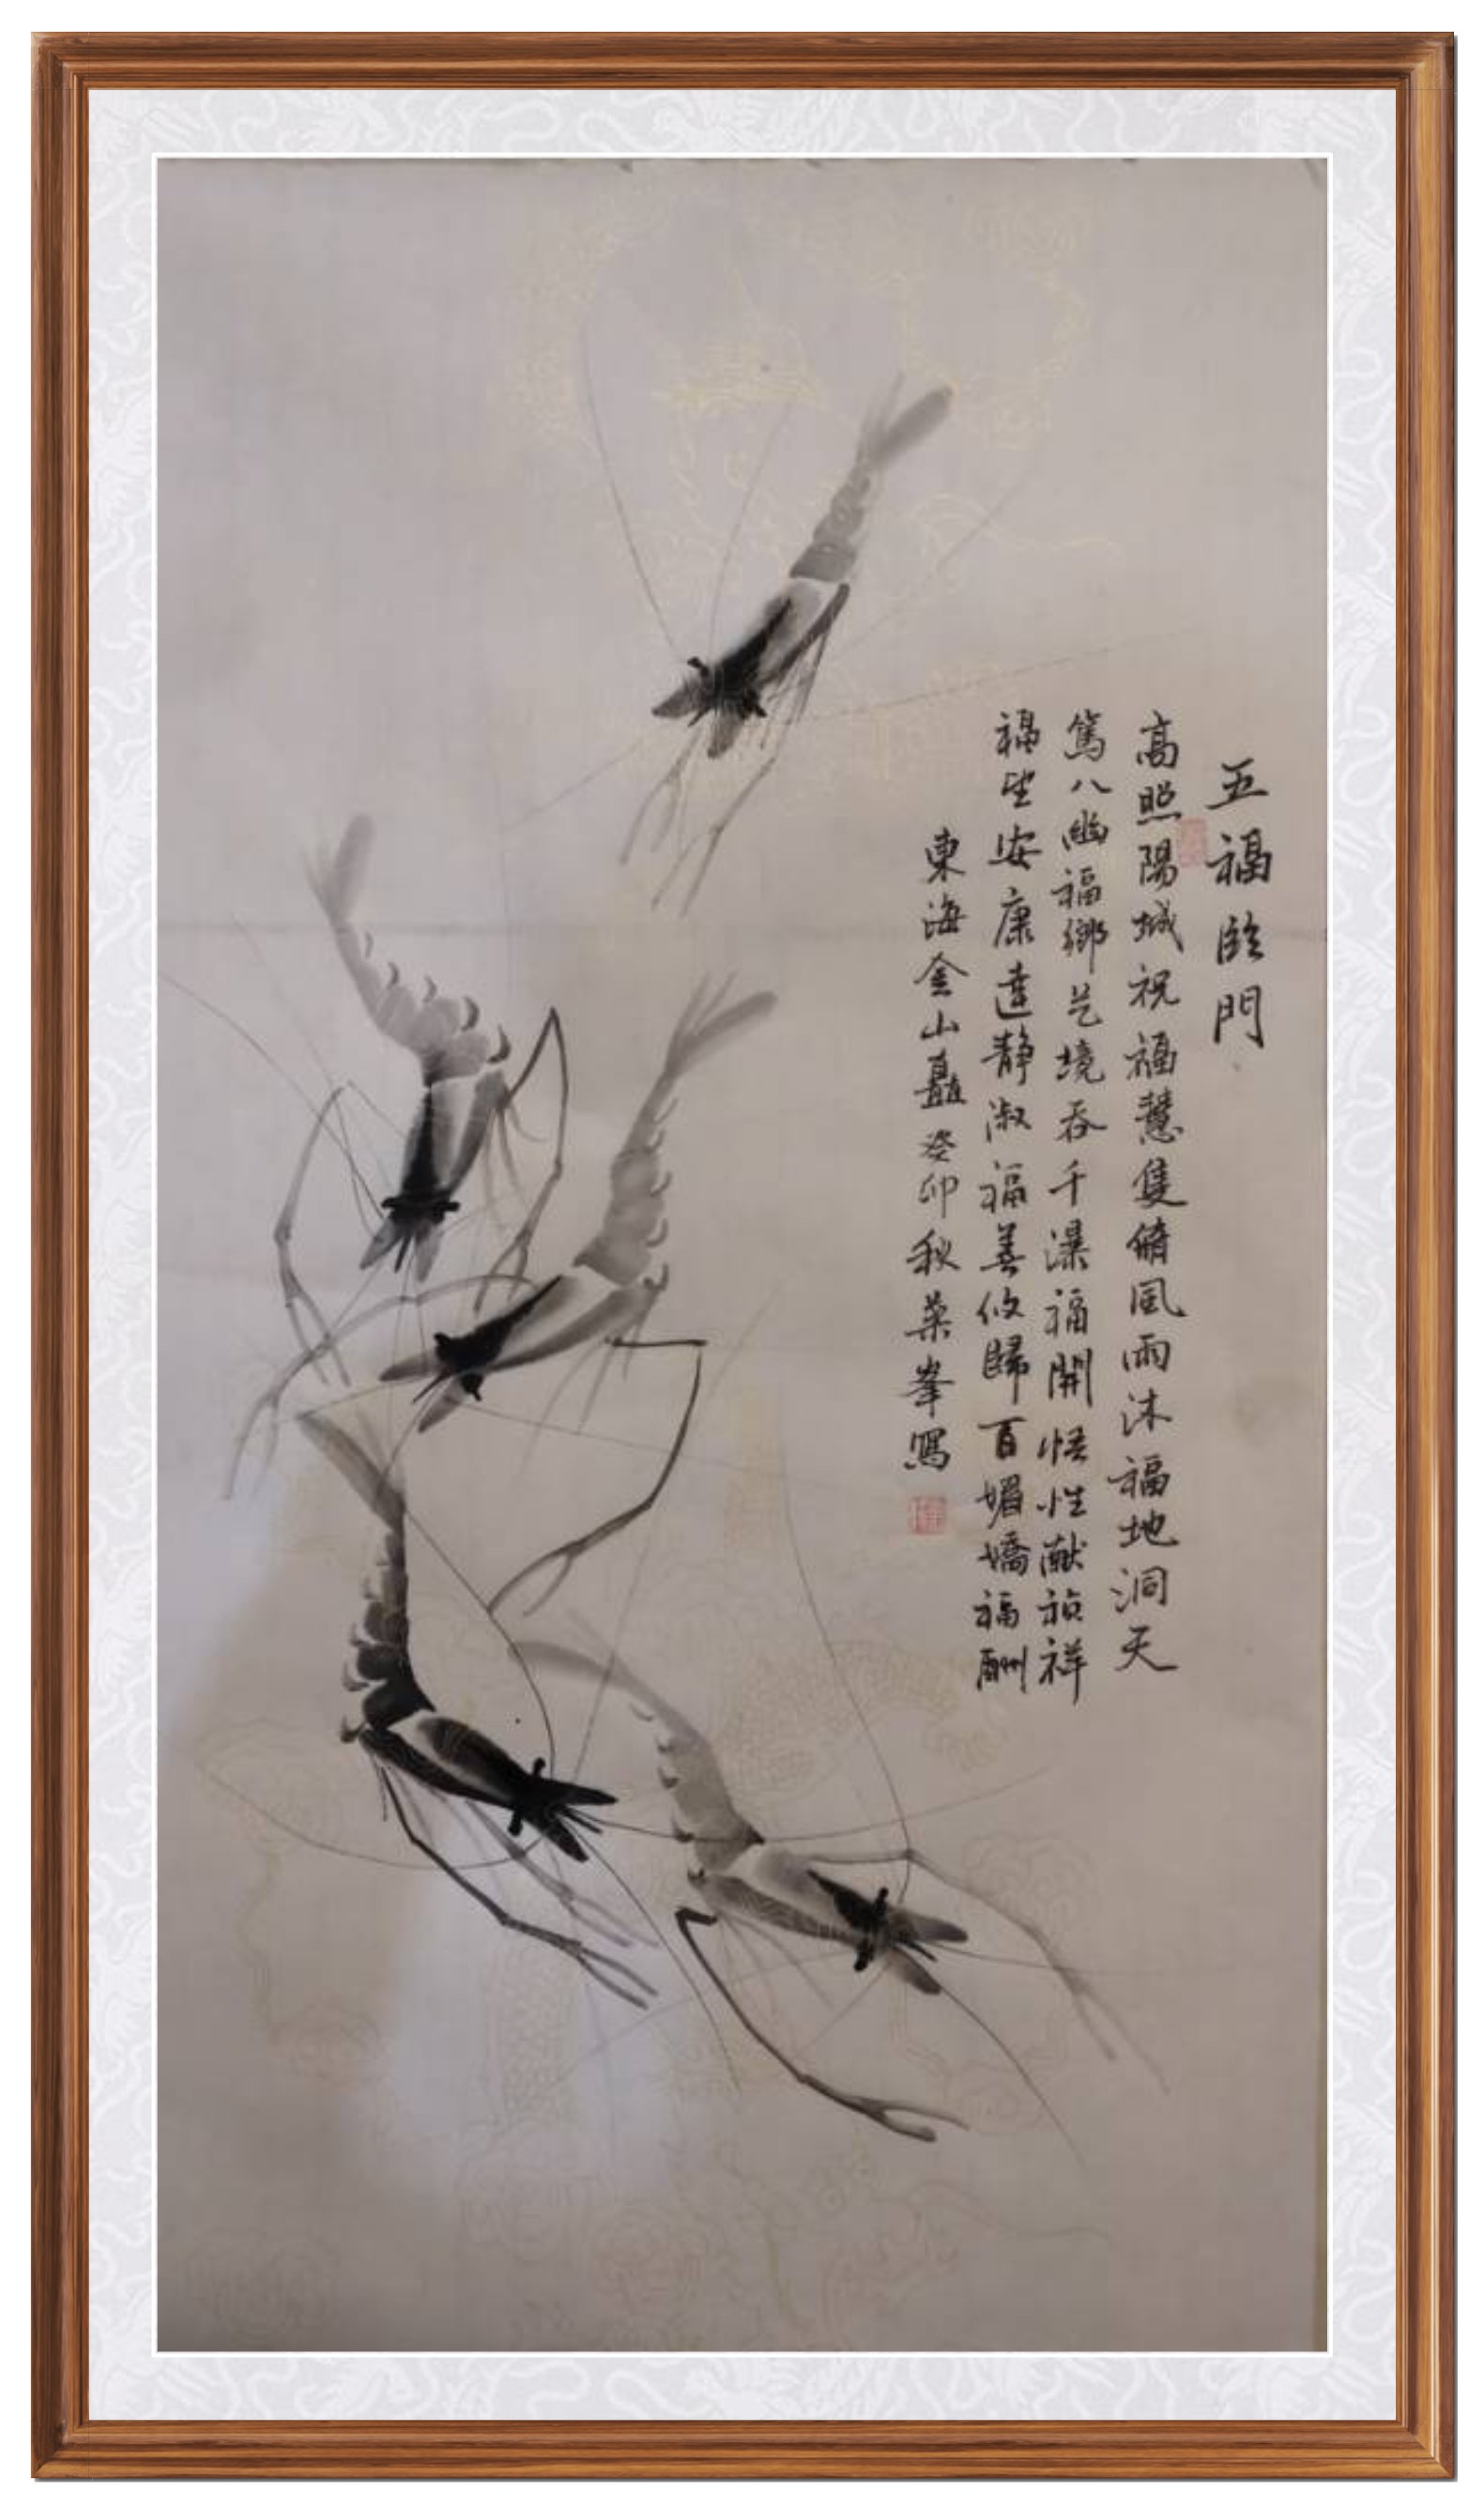 五福臨門
高照陽城祝福慧隻脩風雨沐福地洞天
篤八幽福鄉艺境吞千瀑福開悟性献祯祥
福坐安康達静淑福善攸歸百媚嬌福酬
東海金山矗癸卯秋葉峯寫